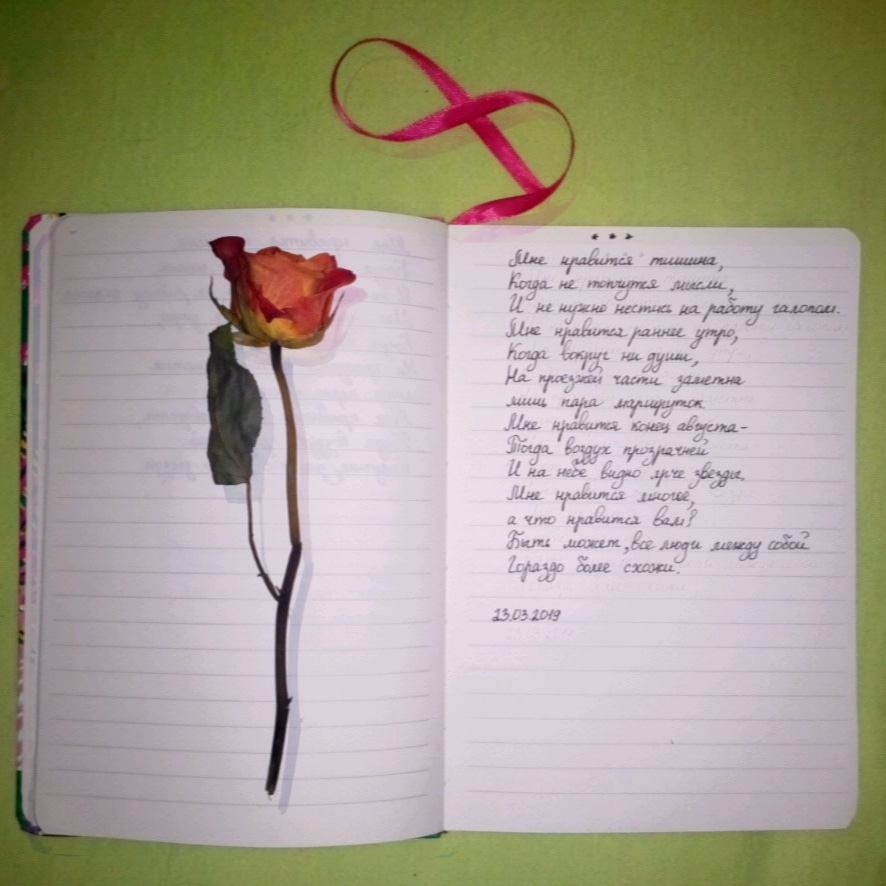 * * *
Мне нравится тишина,
Когда не топчутся мысли,
И не нужно нестись на работу галопом.
Мне нравится раннее утро,
Когда вокруг ни души,
На проезжей части заметна
лишь пара маршруток.
Мне нравится конец августа-
Тогда воздух прозрачней
И на небе видно ярче звезды.
Мне нравится многое,
а что нравится вам?
Быть может, все люди между собой
Гораздо более схожи.
23.03.2019